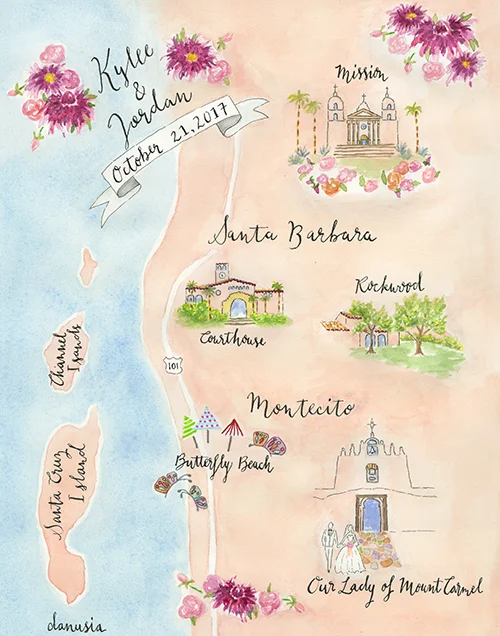 Kylee
&
Jordan
October 21, 2017
Mission
Santa Barbara
Courthouse
Rockwood
Channel
Islands
101
Montecito
Butterfly Beach
Santa Cruz
Island
Our Lady of Mount Carmel
danusia